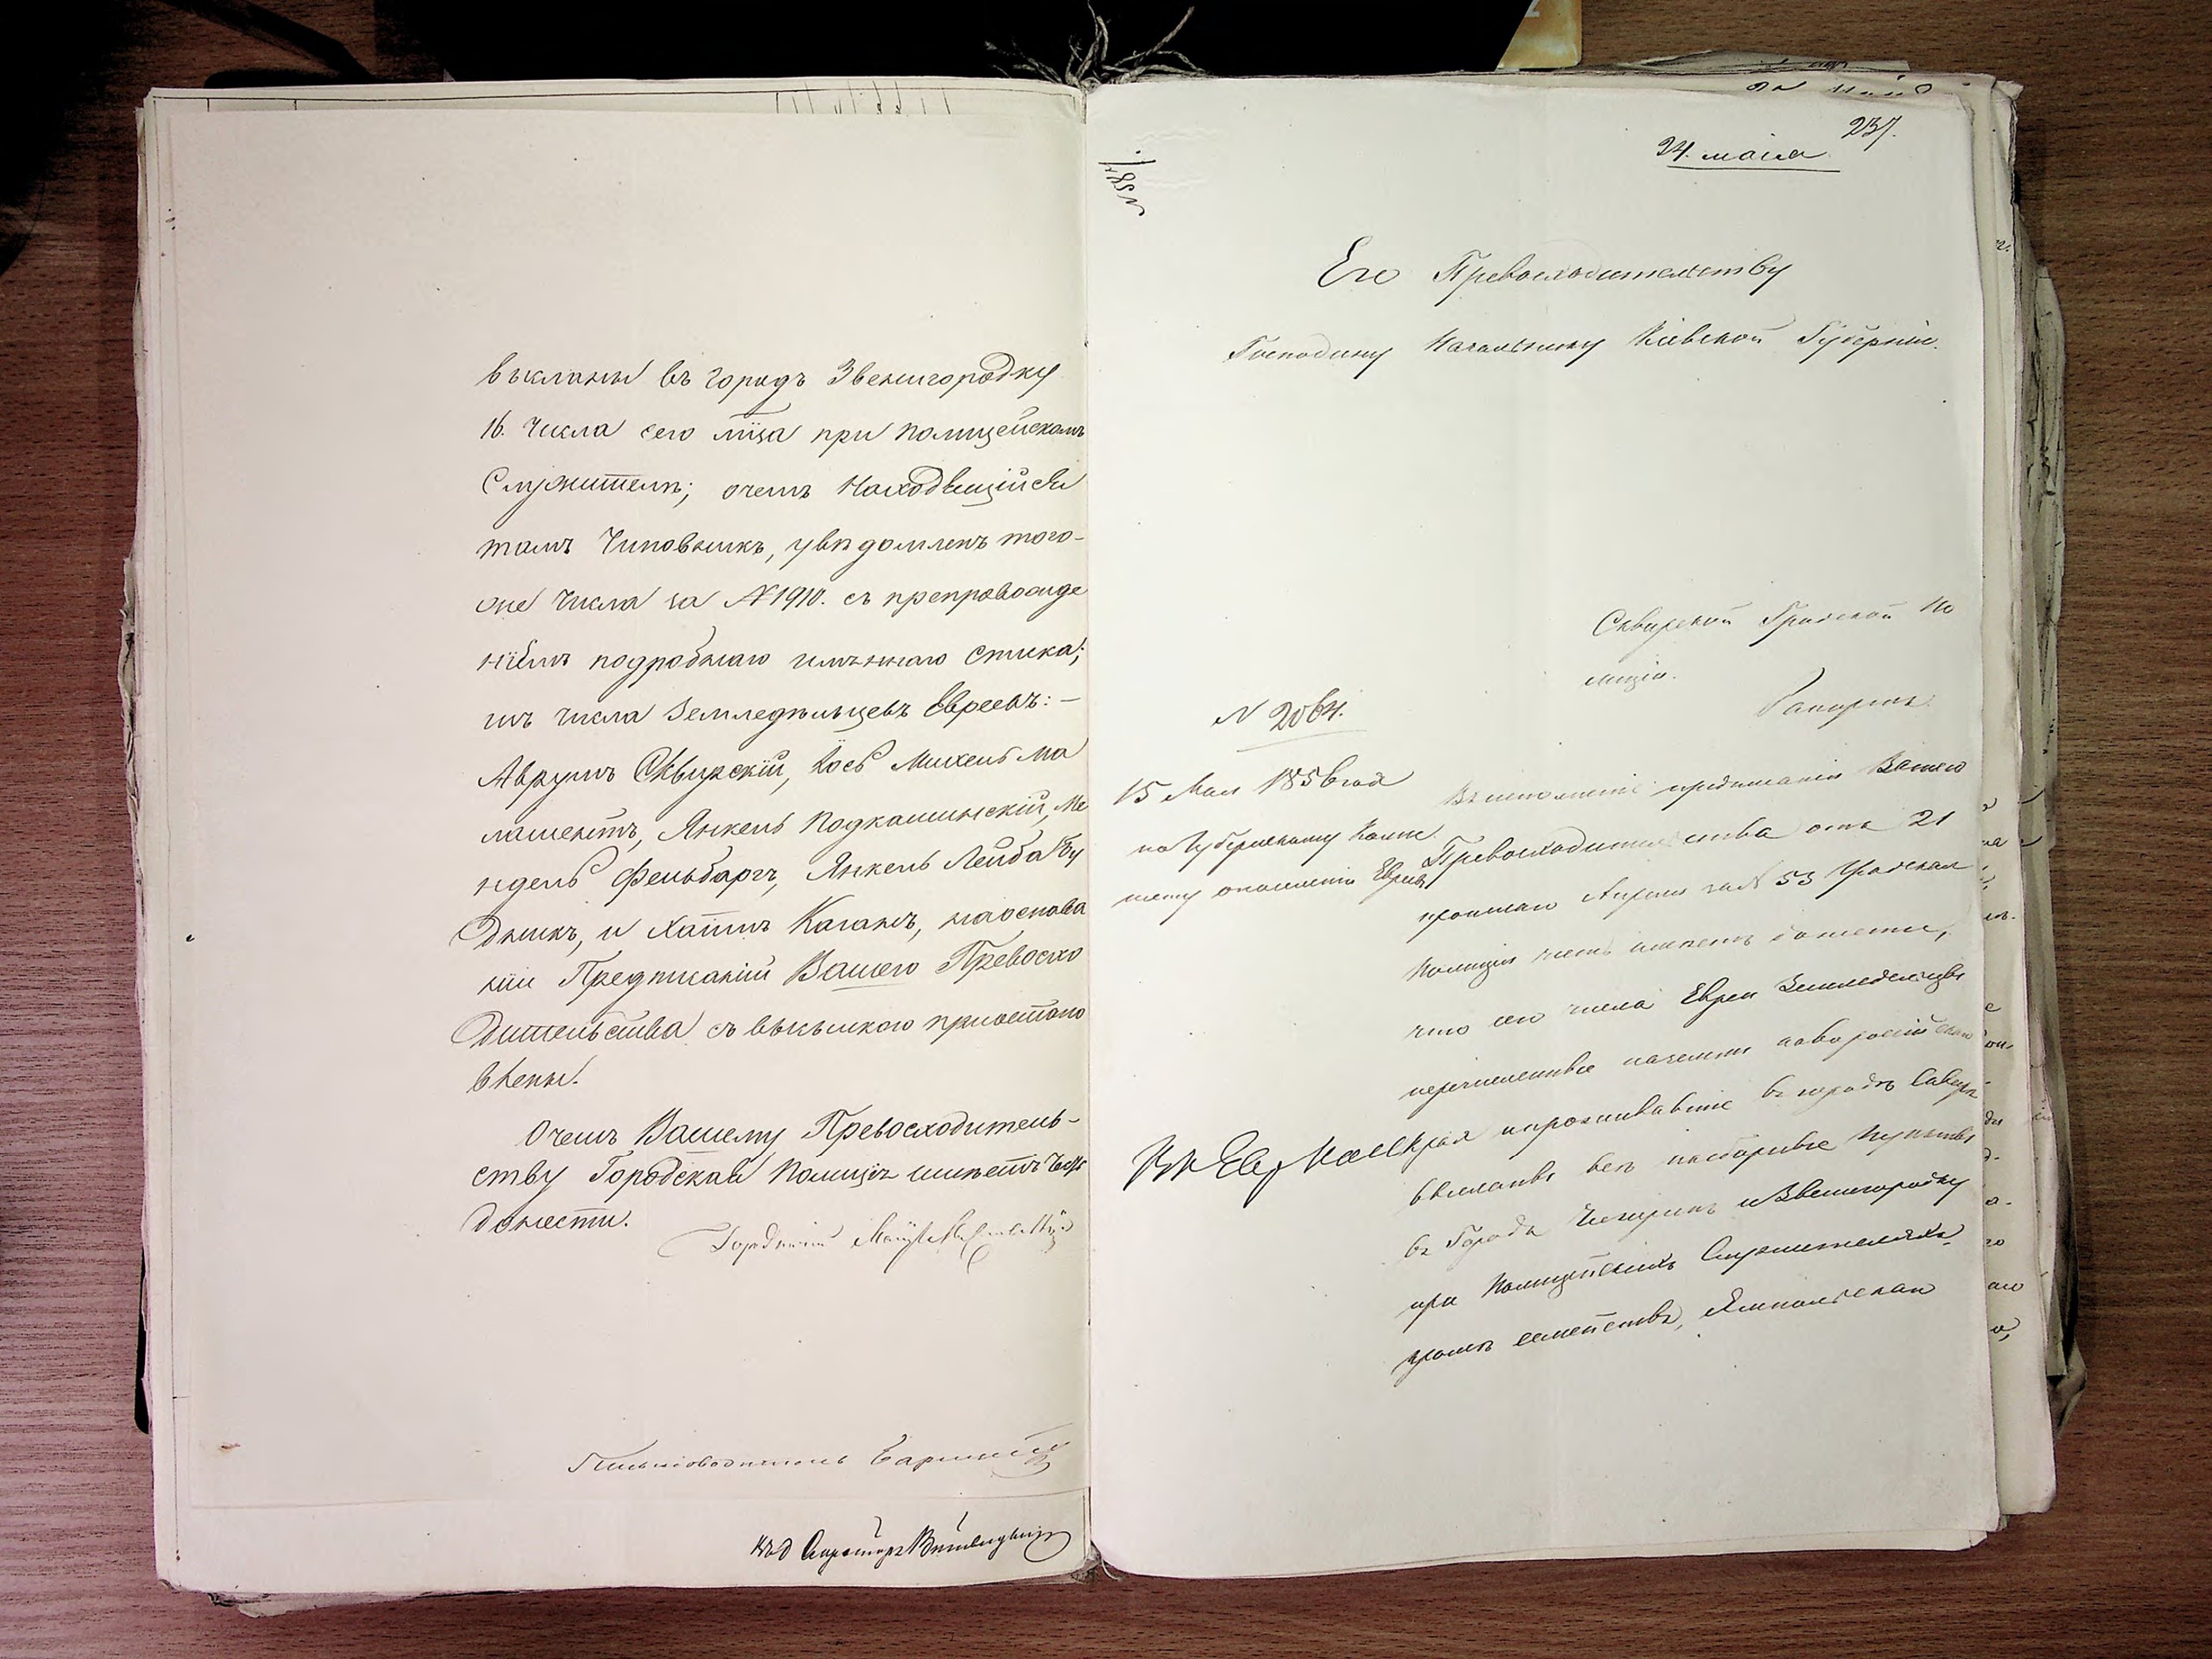 высланы въ городъ Звенигородку
16. числа сего мца при полицейскомъ
Служителѣ; о чемъ находящійся
тамъ Чиновникъ, увѣдомленъ того-
же числа за №1910. съ препровожде
ніемъ подробнаго имѣннаго списка;
изъ числа Земледѣльцевъ Евреевъ: —
Аврумъ Сквирскій, Іось Михель Ма
ламентъ, Янкель Подкаминскій, Ме
ндель Фельбаргъ, Янкель Лейба Бу
дникъ, и Хаимъ Каганъ, на основа
ніи Предписанія Вашего Превосхо
дительства съ высылкою пріостано
влены.
О чемъ Вашему Превосходитель-
ству Городская Полиція имѣетъ честь
донести.
Городничій
Письмоводитель
237.
24. маія
Его Превосходительству
Господину Начальнику Кіевской Губерніи.
Сквирской Градской По
лиціи.
Рапортъ.
N 2064.
15 Мая 1856 года
по Губернскому Коми
тету о поселеніи Евреевъ
Въ исполненіе предписанія Вашего
Превосходительства отъ 21
прошлаго Апрѣля за № 53 Градская
Полиція честь имѣетъ донести,
что сего числа Евреи Земледельцы
перечисленные на земли новороссійскаго
Края и проживавшіе въ городѣ Сквирѣ
высланы всѣ на сборные пункты
въ Города Чигиринъ и Звенигородку
при Полицейскихъ Служителяхъ,
кромѣ семействъ, Ямпольскаго